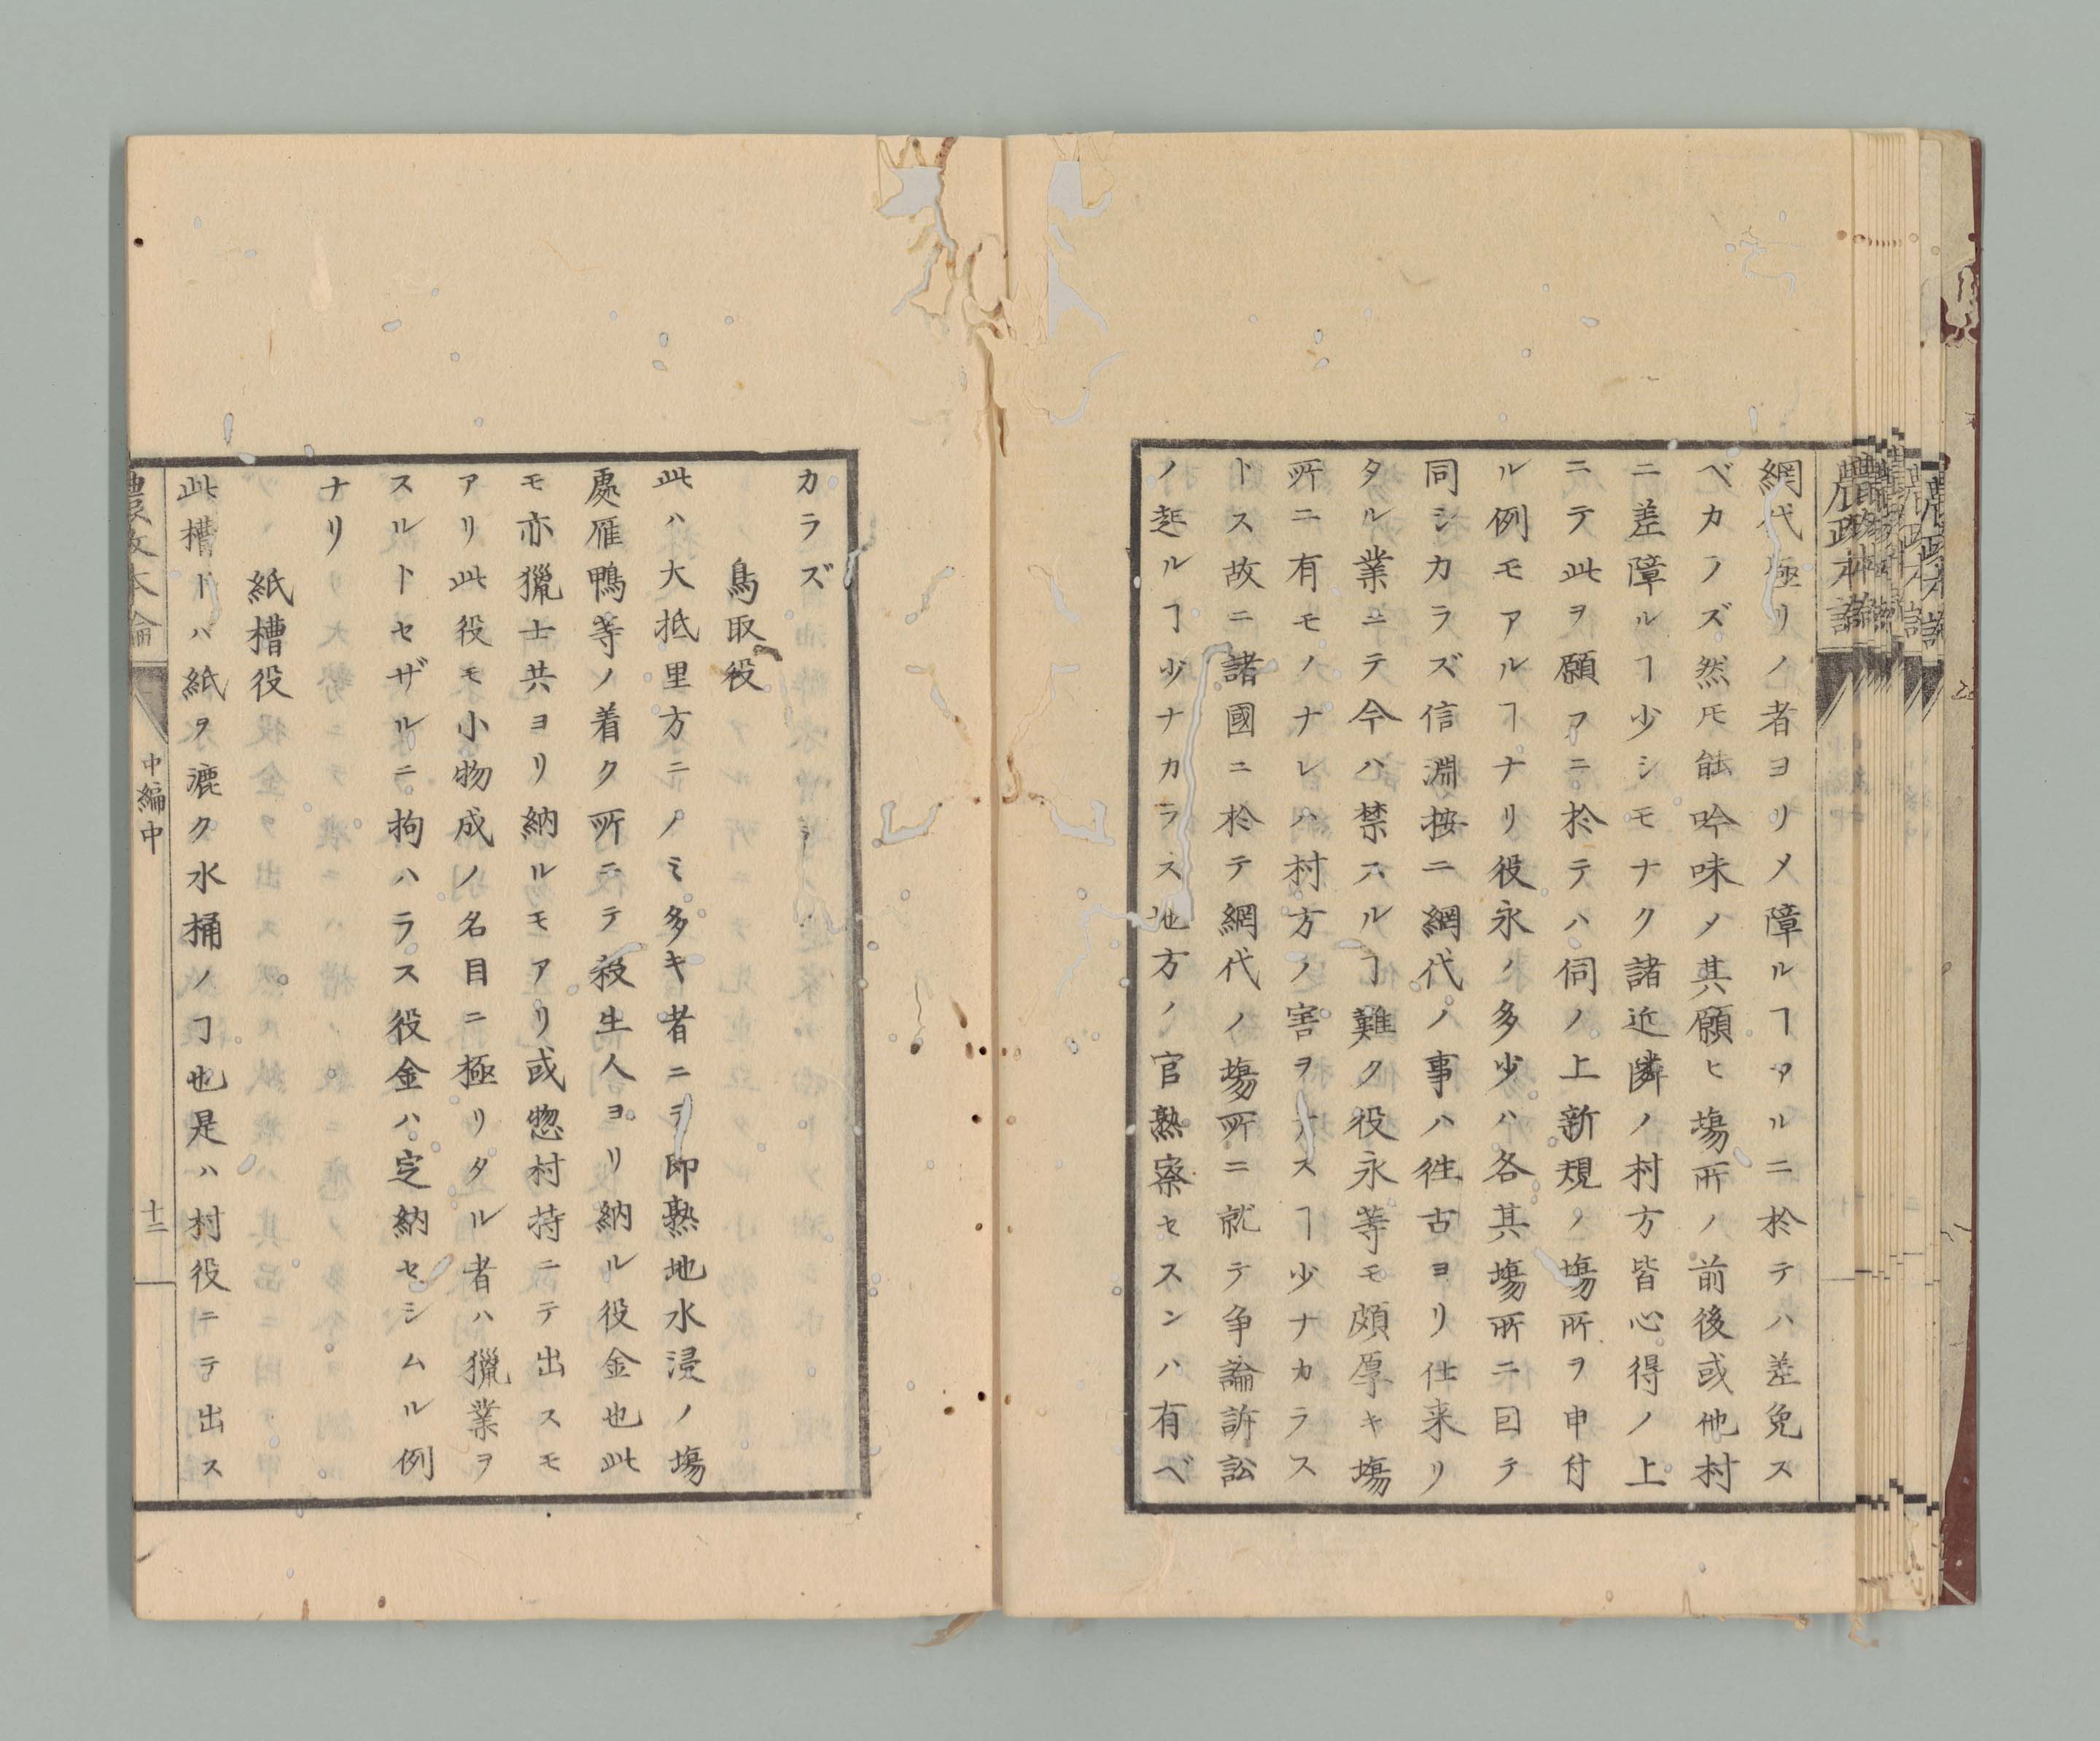 網代極リノ者ヨリメ障ルヿアルニ於テハ差免ス
ベカラズ然𪜈能吟味メ其願ヒ塲所ノ前後或他村
ニ差障ルヿ少シモナク諸近隣ノ村方皆心得ノ上
ニテ此ヲ願フニ於テハ伺ノ上新規ノ塲所ヲ申付
ル例モアルヿナリ役永ノ多少ハ各其塲所ニ因テ
同シカラズ信淵按ニ網代ノ事ハ徃古ヨリ仕来リ
タル業ニテ今ハ禁スルヿ難ク役永等モ頗厚キ塲
所ニ有モノナレハ村方ノ害ヲナスヿ少ナカラス
トス故ニ諸國ニ於テ網代ノ塲所ニ就テ争論訴訟
ノ起ルヿ少ナカラス地方ノ官熟察セスンハ有ベ
カラズ
鳥取役
此ハ大抵里方ニノミ多キ者ニテ即熟地水浸ノ塲
處雁鴨等ノ着ク所ニテ殺生人ヨリ納ル役金也此
モ亦獵士共ヨリ納ルモアリ或惣村持ニテ出スモ
アリ此役モ小物成ノ名目ニ極リタル者ハ獵業ヲ
スルトセザルニ拘ハラス役金ハ定納セシムル例
ナリ
紙槽役
此槽トハ紙ヲ漉ク水桶ノヿ也是ハ村役ニテ出ス
農政本論
中編中
十二